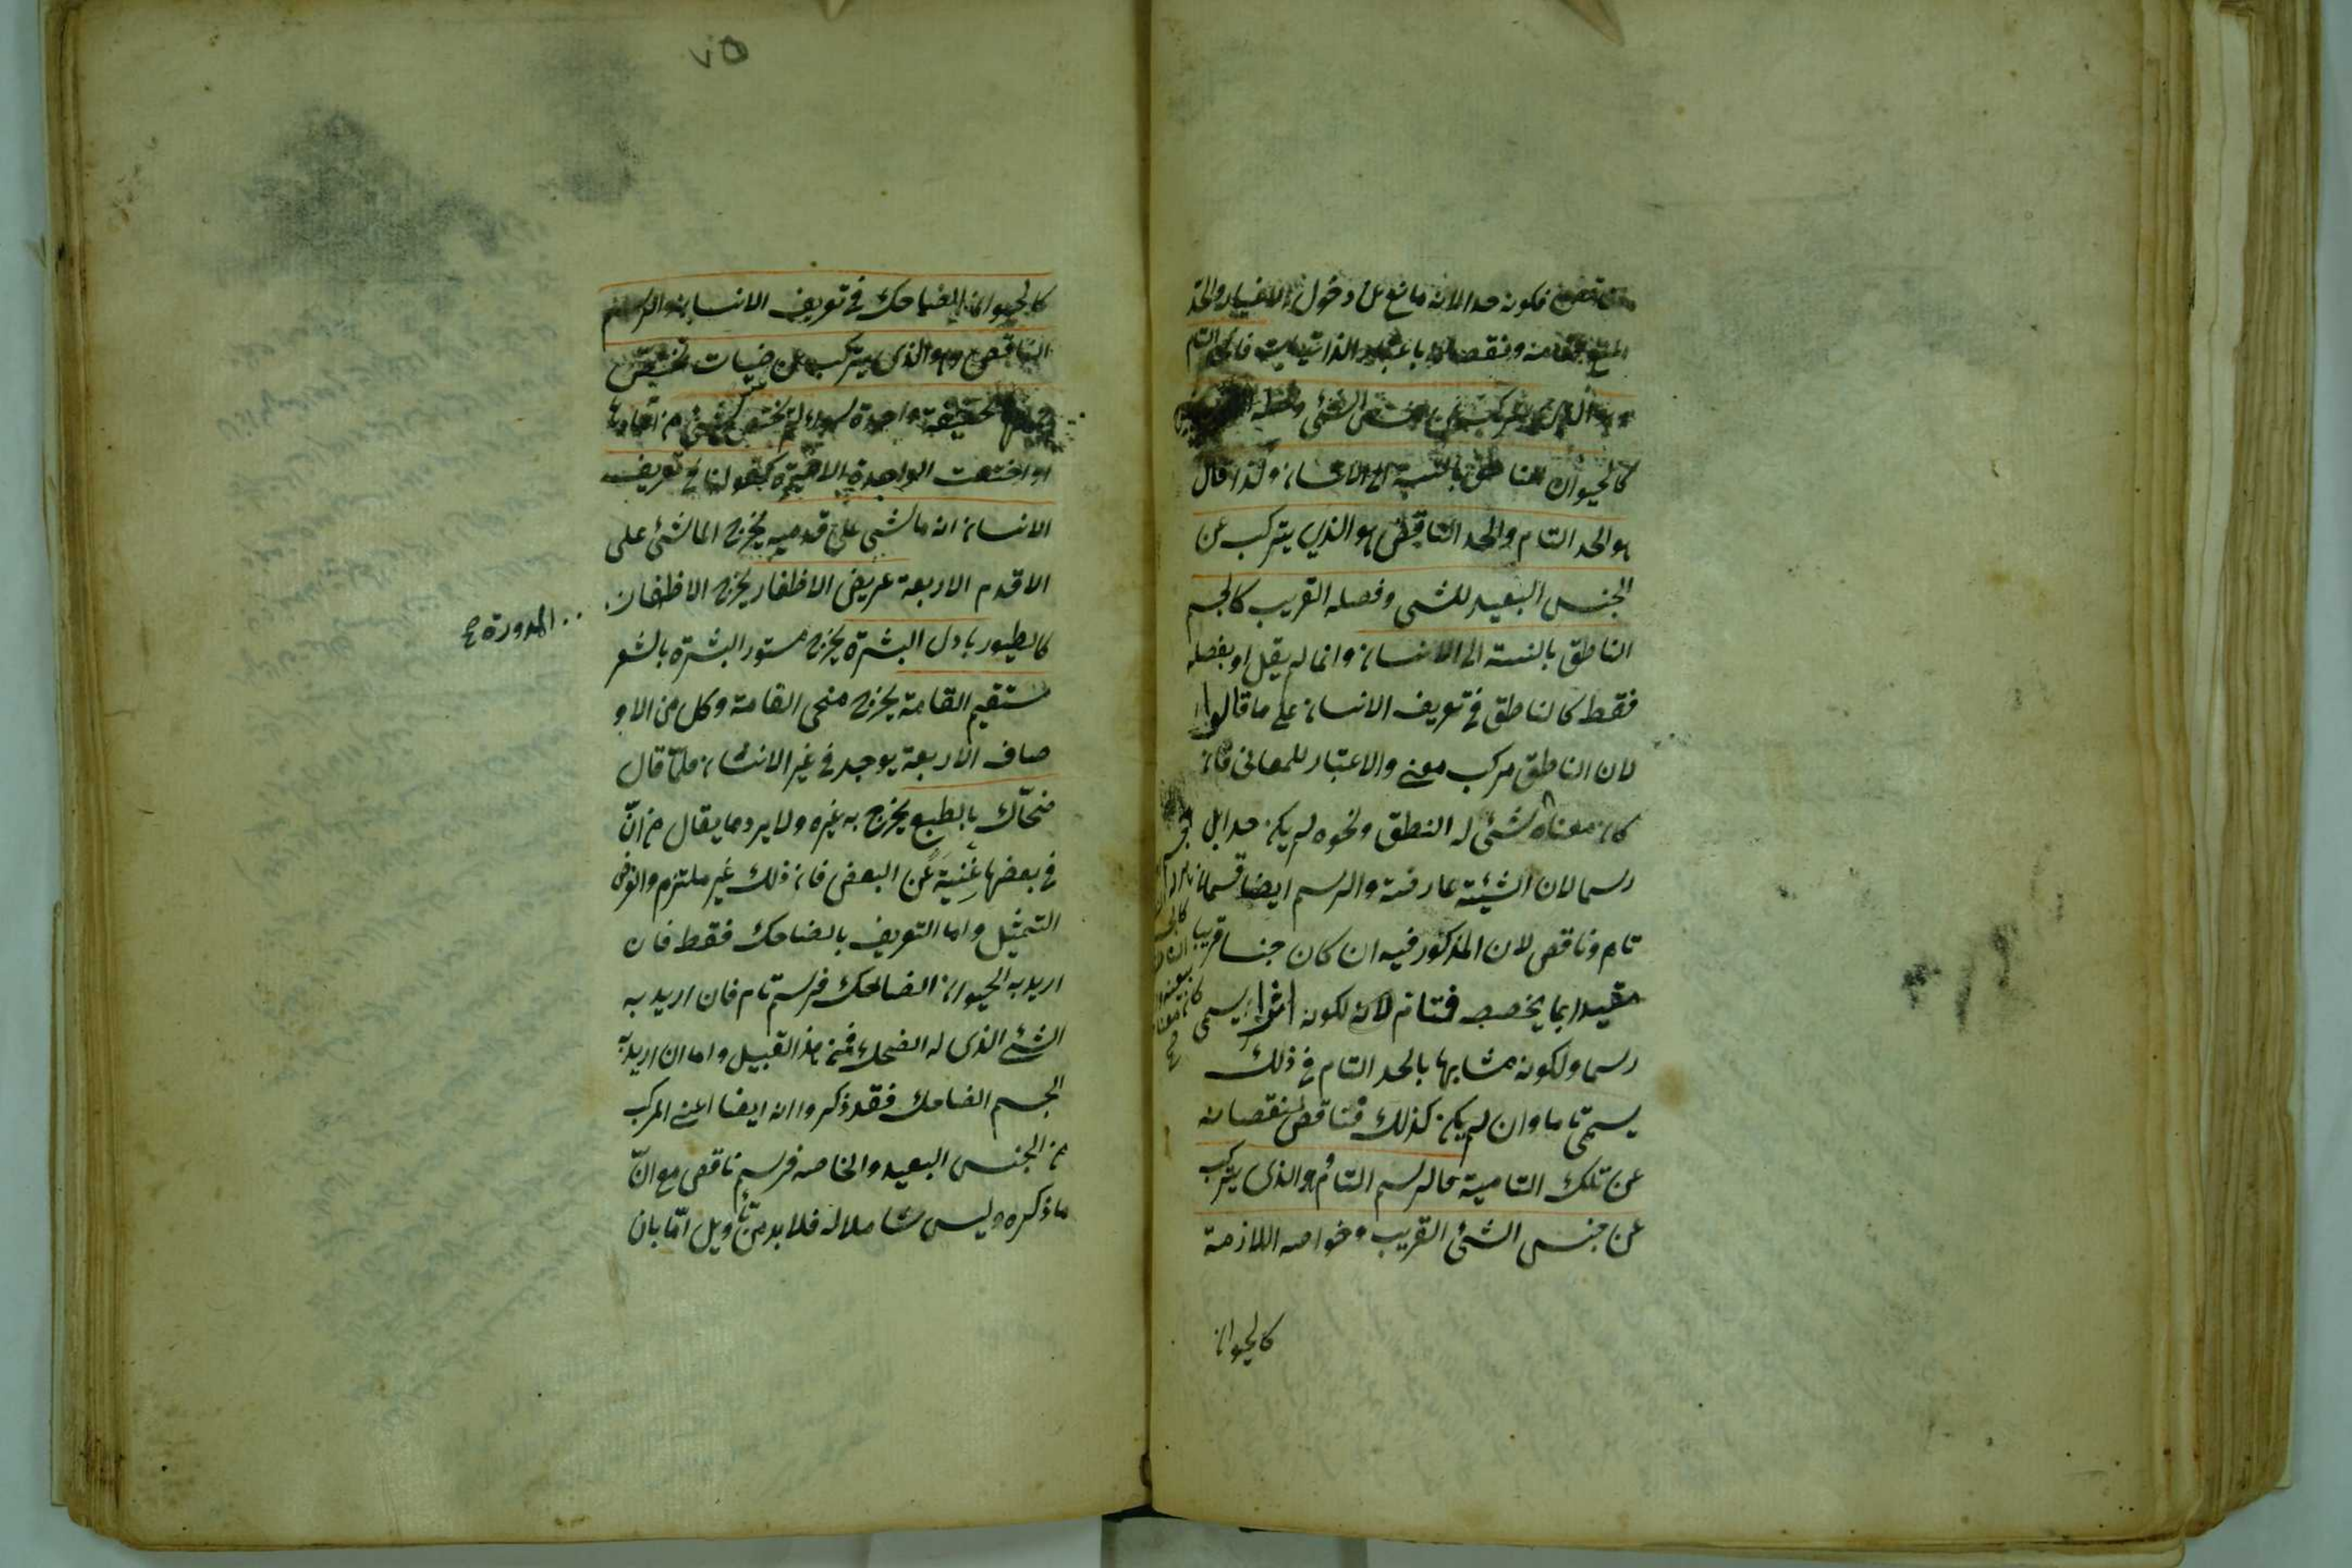 فكونه حدا لانه مانع عن دخول الاغيار والحد
ونقصانه باعتبار الذاتيات فالحد التام
وهو الذى يتركب عن جنس الشئ وفصله
كالحيوان الناطق بالنسبة الى الانسان ولذا قال
هو الحد التام والحد الناقص هو الذي يتركب عن
الجنس البعيد للشئ وفصله القريب كالجسم
الناطق بالنسبة الى الانسان وانما لم يقل او بفصله
فقط كالناطق فى تعريف الانسان على ما قالوا
لان الناطق مركب معنى والاعتبار للمعانى فان
كان معناه شئ له النطق ونحوه لم يكن حدا بل
رسما لان الشيئية عارضة والرسم ايضا قسمان
تام وناقص لان المذكور فيه ان كان جنسا قريبا
مقيدا بما يخصصه فتام لانه لكونه اثرا يسمى
رسما ولكونه مشابها بالحد التام فى ذلك
يسمى تاما وان لم يكن كذلك فناقص لنقصانه
عن تلك التامية فالرسم التام هو الذى يتركب
عن جنس الشئ القريب وخواصه اللازمة
كالحيوان
٧٥
كالحيوان الضاحك فى تعريف الانسان والرسم
الناقص وهو الذى يتركب عن عرضيات تختص
جملتها بحقيقة واحدة سواء لم يختص شئ من آحادها
او اختصت الواحدة الاخيرة كقولنا فى تعريف
الانسان انه ماشى على قدميه يخرج الماشئ على
الاقدم الاربعة عريض الاظفار يخرج الاظفار
المدورة صح
كالطيور بادى البشرة يخرج مستور البشرة بالشعر
مستقيم القامة يخرج منحى القامة وكل من الاو
صاف الاربعة يوجد فى غير الانسان فلما قال
ضحّاك بالطبع يخرج به غيره ولا يرد ما يقال من انّ
فى بعضها غنية عن البعض فان ذلك غير ملتزم والغرض
التمثيل واما التعريف بالضاحك فقط فان
اريد به الحيوان الضاحك فرسم تام فان اريد به
الشئ الذى له الضحك فمن هذا القبيل واما ان اريد به
الجسم الضاحك فقد ذكروا انه ايضا اعنى المركب
من الجنس البعيد والخاصه فرسم ناقص مع انّ
ما ذكره ليس شاملا له فلا بد من تأويل امّا بان